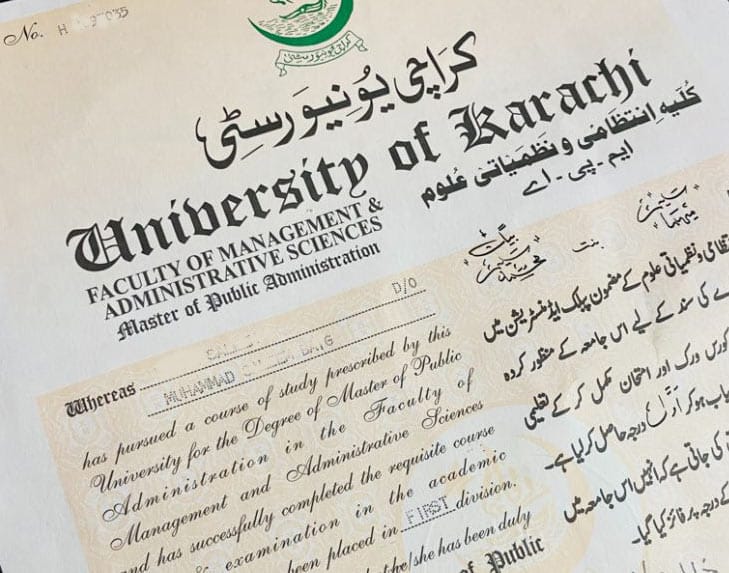 No. H
کراچی یونیورسٹی
University of Karachi
کلیہ انتظامی و نظمیاتی علوم
ایم - پی - اے
FACULTY OF MANAGEMENT &
ADMINISTRATIVE SCIENCES
Master of Public Administration
D/O
Whereas MUHAMMAD BAIG
has pursued a course of study prescribed by this
University for the Degree of Master of Public
Administration in the Faculty of
Management and Administrative Sciences
and has successfully completed the requisite course
examination in the academic
been placed in FIRST division.
the/she has been duly
of Public
بنت
نظمیاتی علوم کے مضمون پبلک ایڈمنسٹریشن میں
کی سند کے لیے اس جامعہ کے منظور کردہ
کورس ورک اور امتحان مکمل کر کے تعلیمی
یاب ہو کر اوّل درجہ حاصل کر لیا ہے۔
کی جاتی ہے کہ انہیں اس جامعہ میں
کے درجہ پر فائز کیا گیا۔